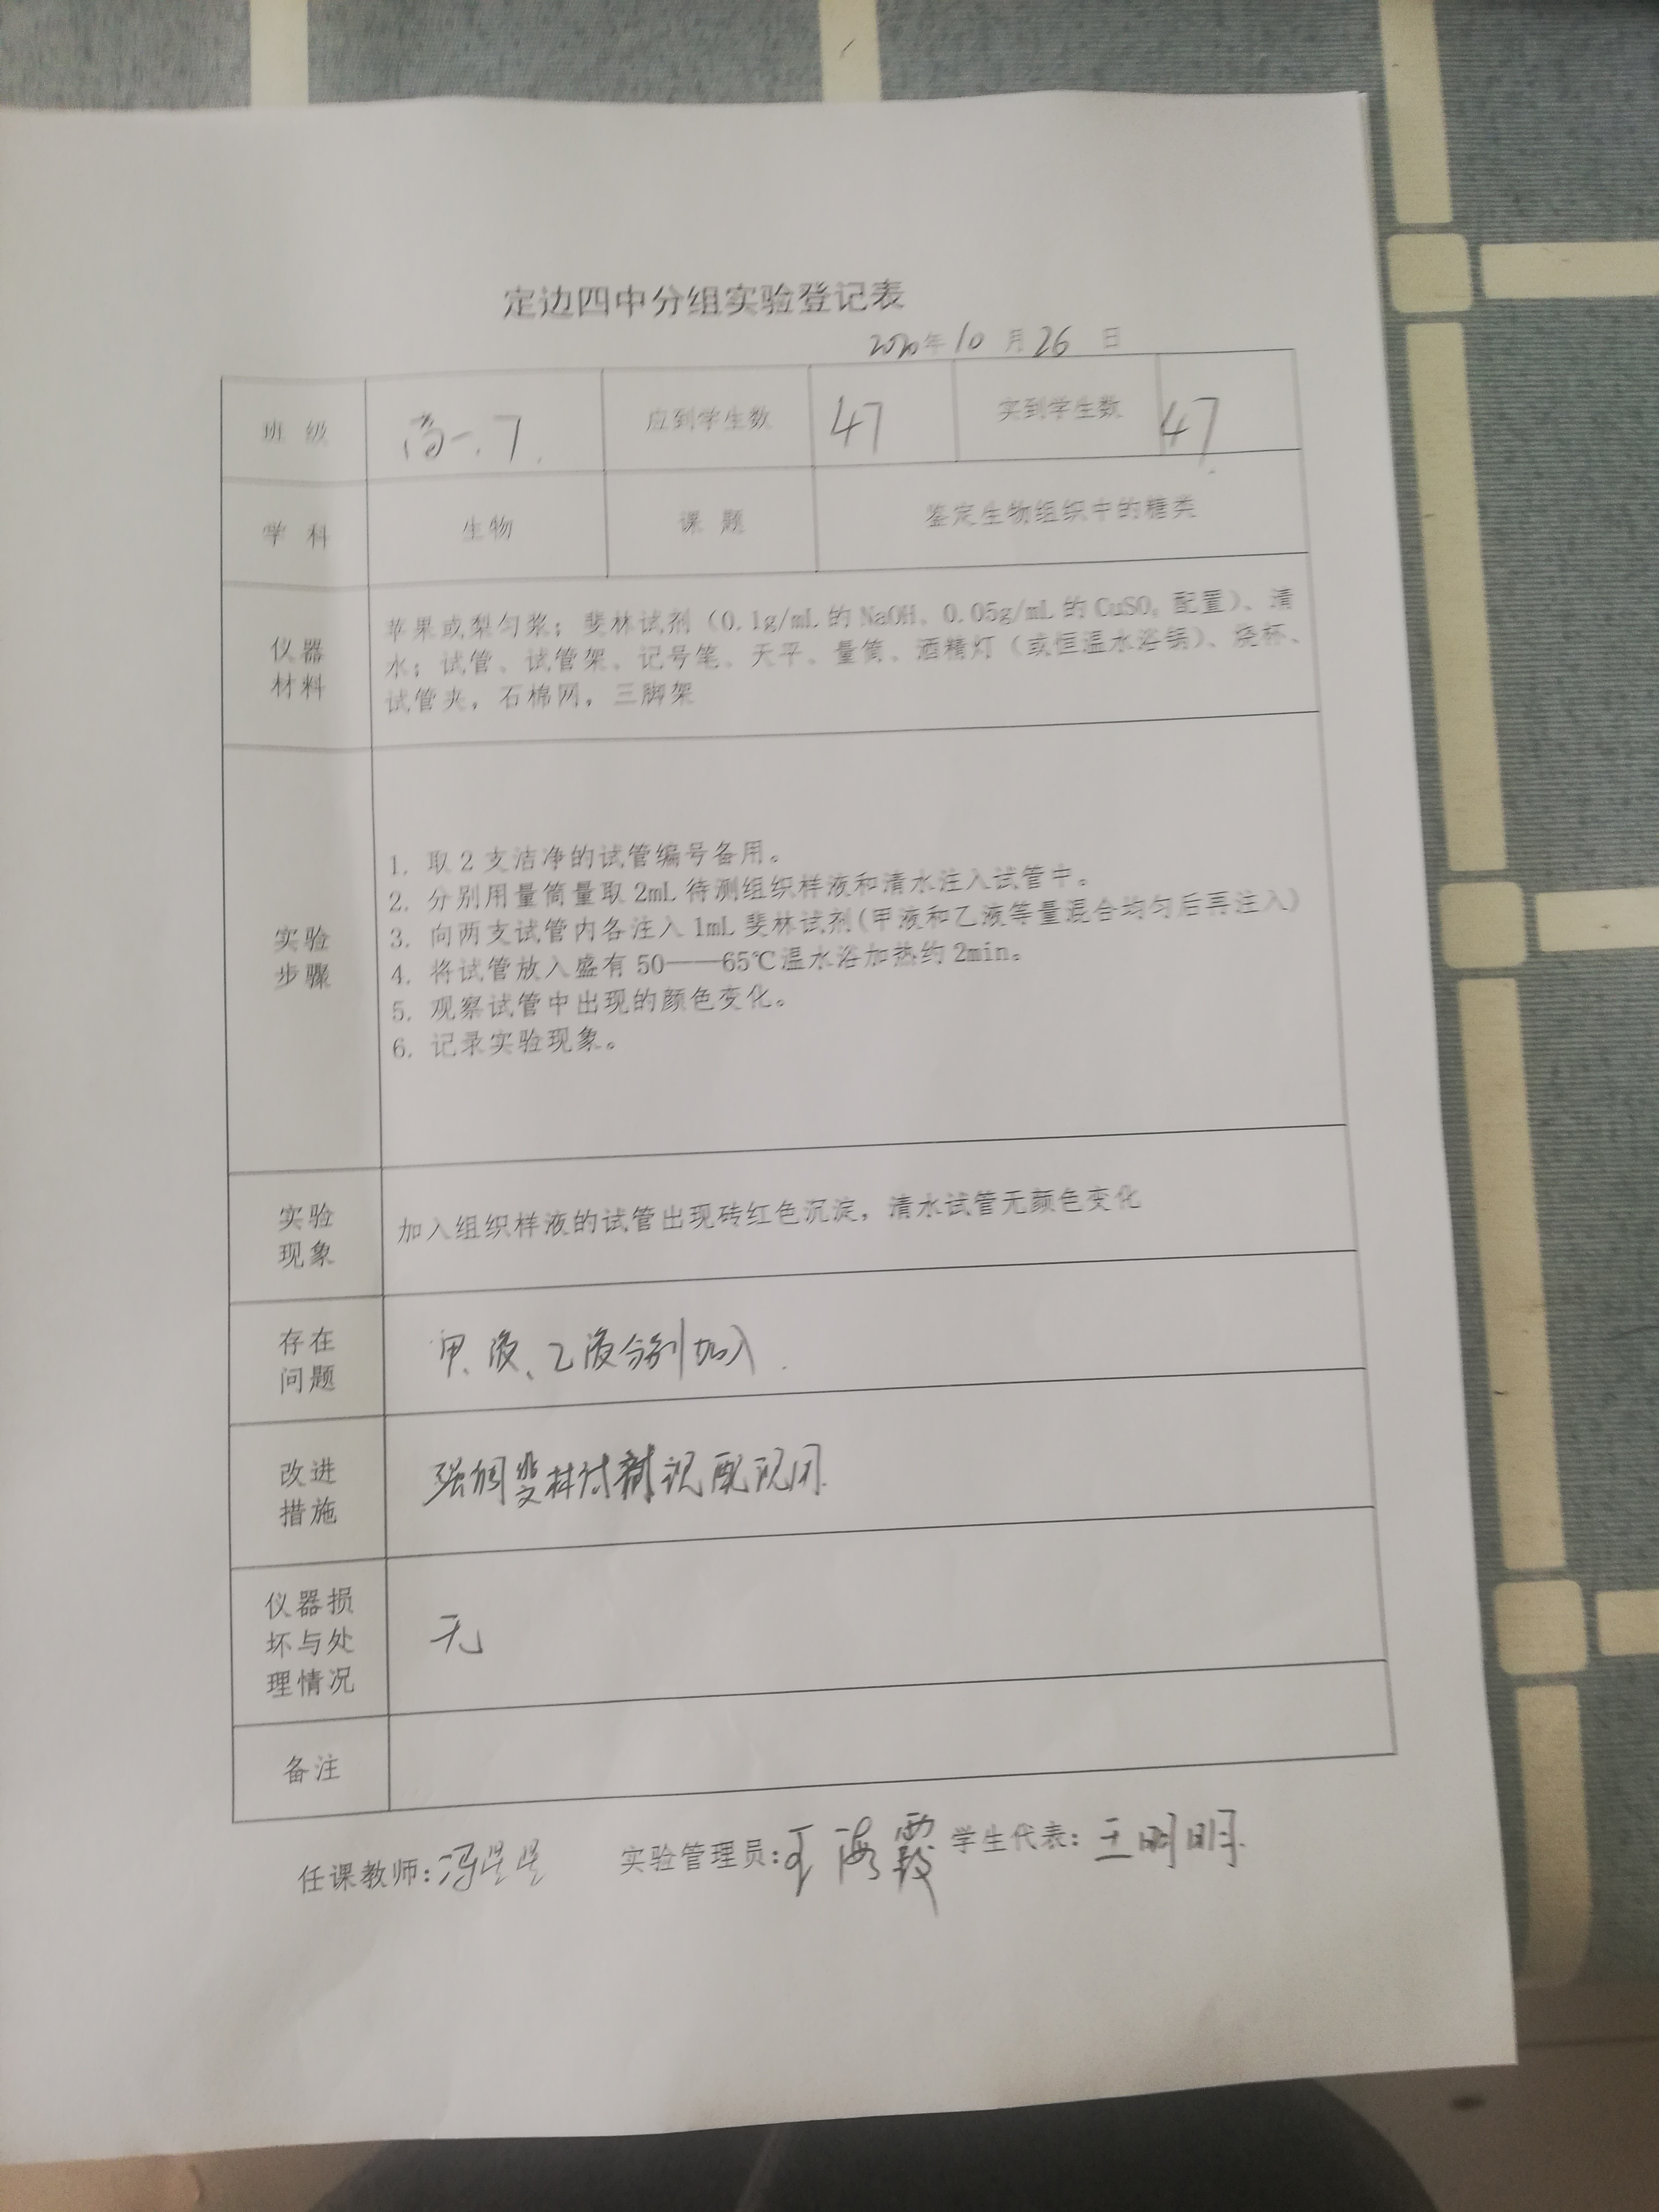 定边四中分组实验登记表
2020年10月26日
班 级 高一.7. 应到学生数 47 实到学生数 47
学 科 生物 课 题 鉴定生物组织中的糖类
仪器
材料
苹果或梨匀浆；斐林试剂（0.1g/mL的NaOH、0.05g/mL的CuSO₄配置）、清
水；试管、试管架、记号笔、天平、量筒、酒精灯（或恒温水浴锅）、烧杯、
试管夹，石棉网，三脚架
实验
步骤
1. 取2支洁净的试管编号备用。
2. 分别用量筒量取2mL待测组织样液和清水注入试管中。
3. 向两支试管内各注入1mL斐林试剂(甲液和乙液等量混合均匀后再注入)
4. 将试管放入盛有50——65℃温水浴加热约2min。
5. 观察试管中出现的颜色变化。
6. 记录实验现象。
实验
现象
加入组织样液的试管出现砖红色沉淀，清水试管无颜色变化
存在
问题
甲液、乙液分别加入.
改进
措施
强调斐林试剂现配现用.
仪器损
坏与处
理情况
无
备注
任课教师: 实验管理员:王海霞 学生代表:王明明.